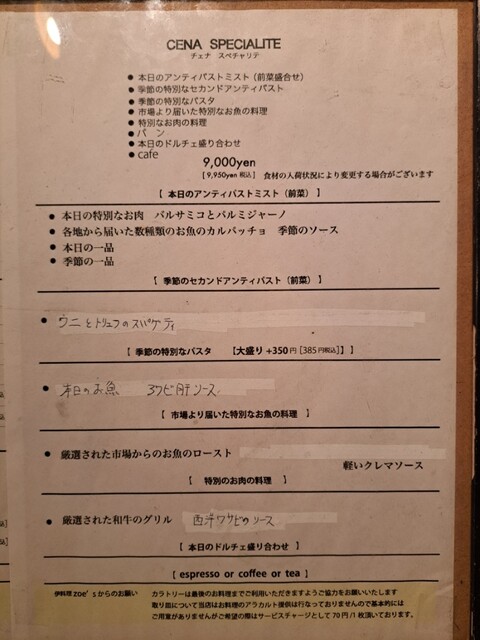 CENA SPECIALITE
チェナ スペチャリテ
● 本日のアンティパストミスト(前菜盛合せ)
● 季節の特別なセカンドアンティパスト
● 季節の特別なパスタ
● 市場より届いた特別なお魚の料理
● 特別なお肉の料理
● パン
● 本日のドルチェ盛り合わせ
● cafe
9,000yen
[ 9,950yen 税込 ] 食材の入荷状況により変更する場合がございます
【 本日のアンティパストミスト(前菜) 】
● 本日の特別なお肉 バルサミコとパルミジャーノ
● 各地から届いた数種類のお魚のカルパッチョ 季節のソース
● 本日の一品
● 季節の一品
【 季節のセカンドアンティパスト(前菜) 】
● ウニとトリュフのスパゲティ
【 季節の特別なパスタ 【大盛り +350 円 [ 385 円税込] 】 】
● 本日のお魚 アワビ肝ソース
【 市場より届いた特別なお魚の料理 】
● 厳選された市場からのお魚のロースト
軽いクレマソース
【 特別のお肉の料理 】
● 厳選された和牛のグリル 西洋ワサビのソース
【 本日のドルチェ盛り合わせ 】
[ espresso or coffee or tea ]
伊料理 zoe's からのお願い カラトリーは最後のお料理までご使用いただきますようご協力をお願いいたします
取り皿について当店はお料理のアラカルト提供は行なっておりませんので基本的には
ご用意がありませんがご希望の際はサービスチャージとして 70 円 /1 枚頂いております。